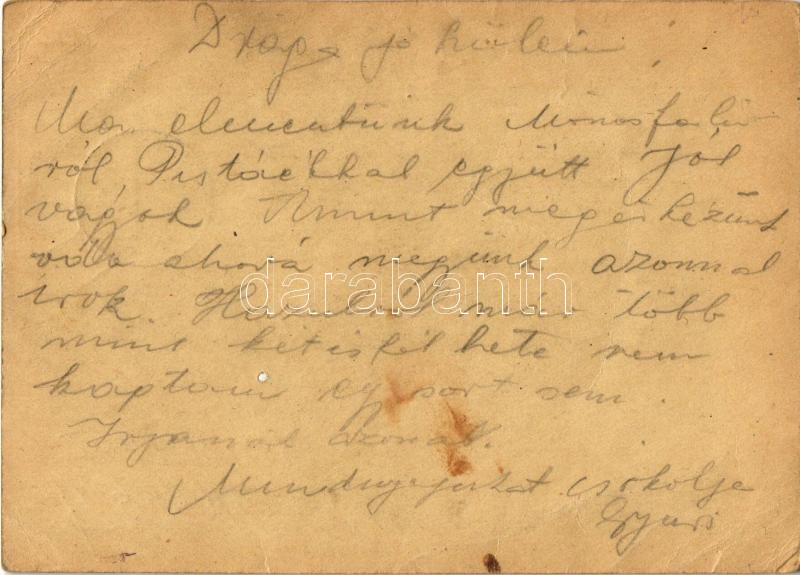 Drága jó
Ma elmentünk Monosfalu
ról, Pistáékkal együtt Jól
vagyok Amint megérkezünk
oda ahová megyünk azonnal
írok. már több
mint két és fél hete nem
kaptam egy sort sem.
azonnal.
Mindnyájukat csókolja
Gyuri
darabanth.com